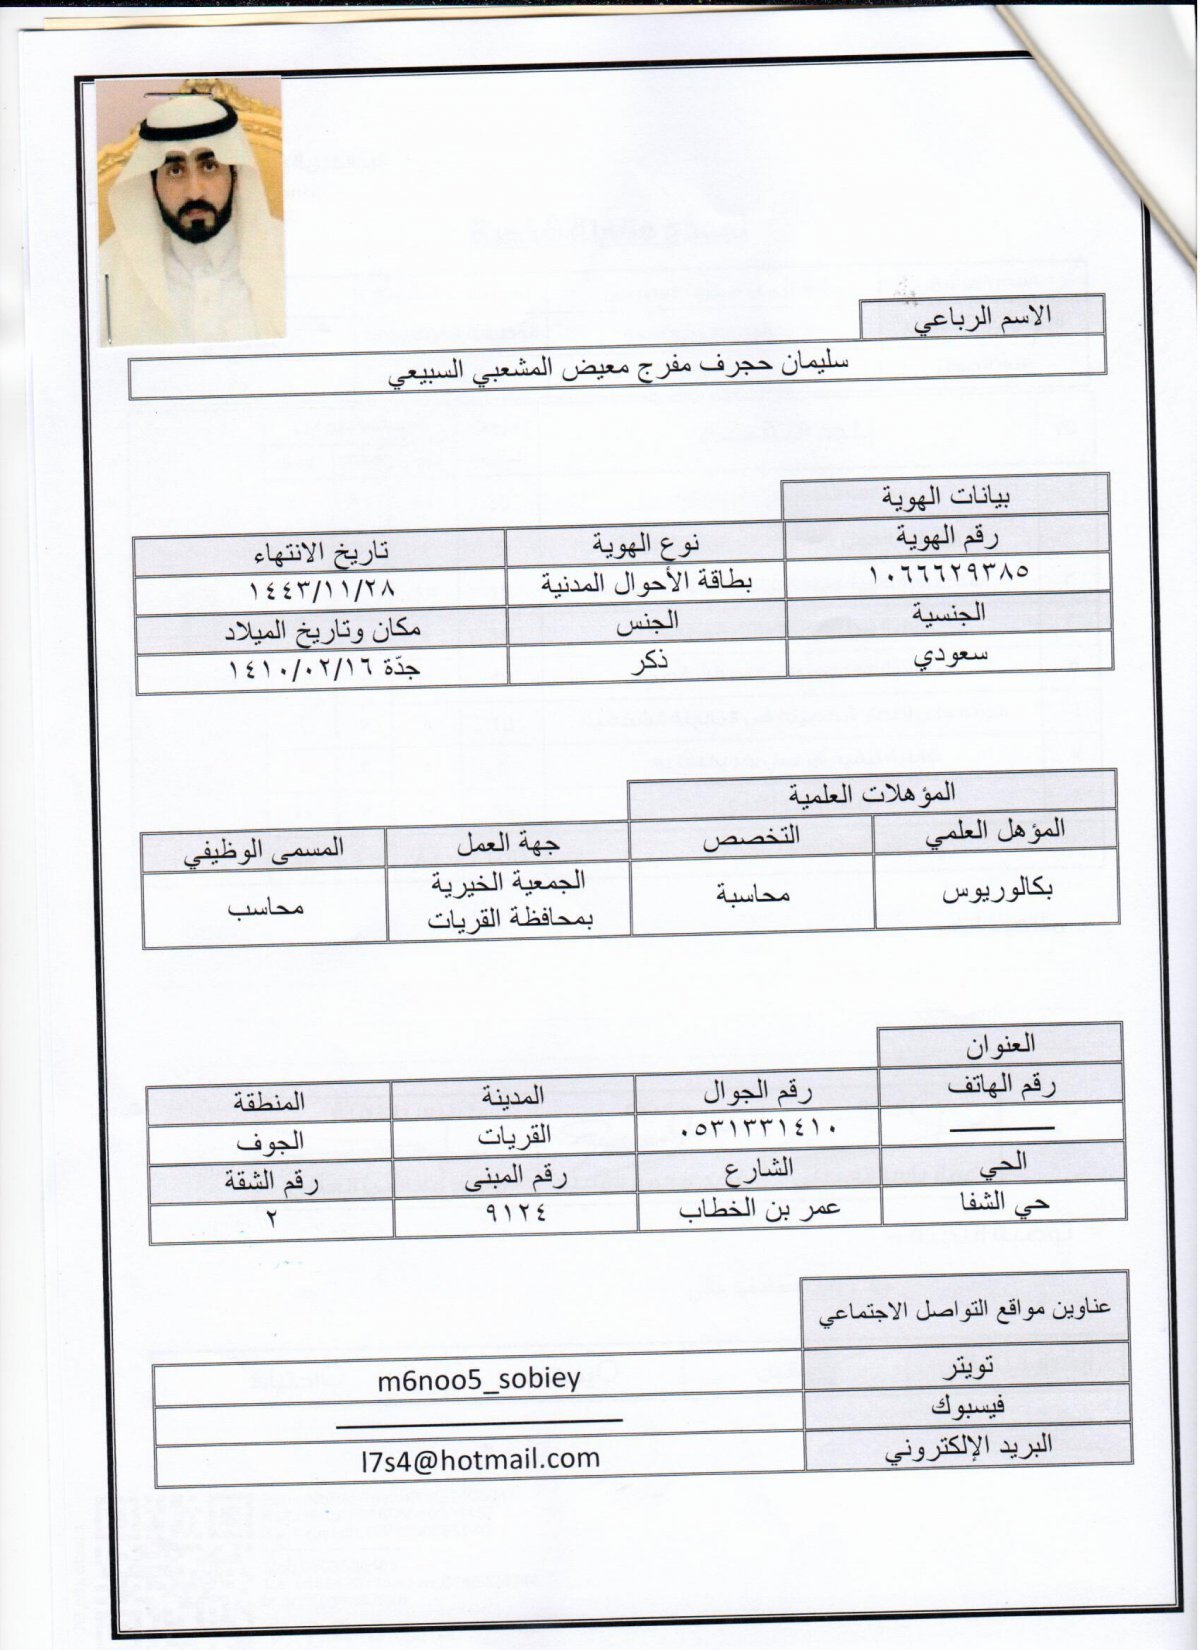 الاسم الرباعي
سليمان حجرف مفرج معيض المشعبي السبيعي
بيانات الهوية
رقم الهوية نوع الهوية تاريخ الانتهاء
١٠٦٦٦٢٩٣٨٥ بطاقة الأحوال المدنية ١٤٤٣/١١/٢٨
الجنسية الجنس مكان وتاريخ الميلاد
سعودي ذكر جدّة ١٤١٠/٠٢/١٦
المؤهلات العلمية
المؤهل العلمي التخصص جهة العمل المسمى الوظيفي
بكالوريوس محاسبة الجمعية الخيرية محاسب
بمحافظة القريات
العنوان
رقم الهاتف رقم الجوال المدينة المنطقة
٠٥٣١٣٣١٤١٠ القريات الجوف
الحي الشارع رقم المبنى رقم الشقة
حي الشفا عمر بن الخطاب ٩١٢٤ ٢
عناوين مواقع التواصل الاجتماعي
تويتر m6noo5_sobiey
فيسبوك
البريد الإلكتروني l7s4@hotmail.com